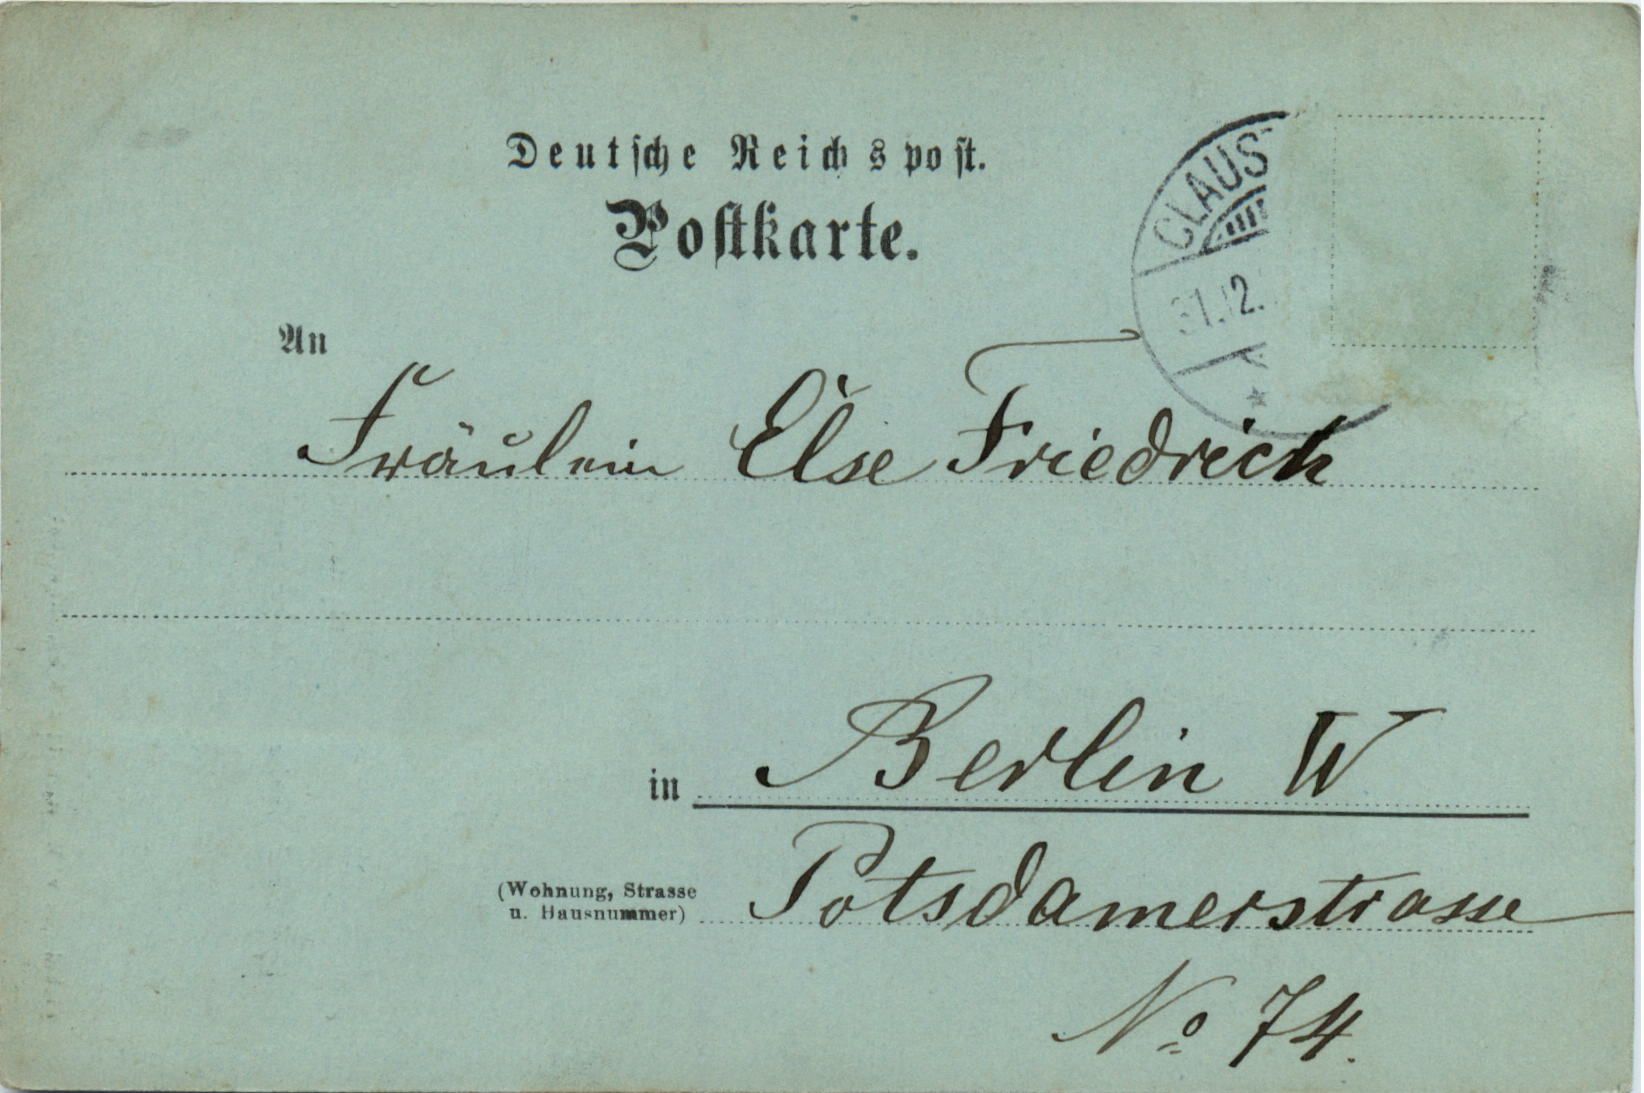 Deutsche Reichspost.
Postkarte.
CLAUST
31.12.
An
Fräulein Else Friedrich
in Berlin W
(Wohnung, Strasse
u. Hausnummer)
Potsdamerstrasse
No 74.